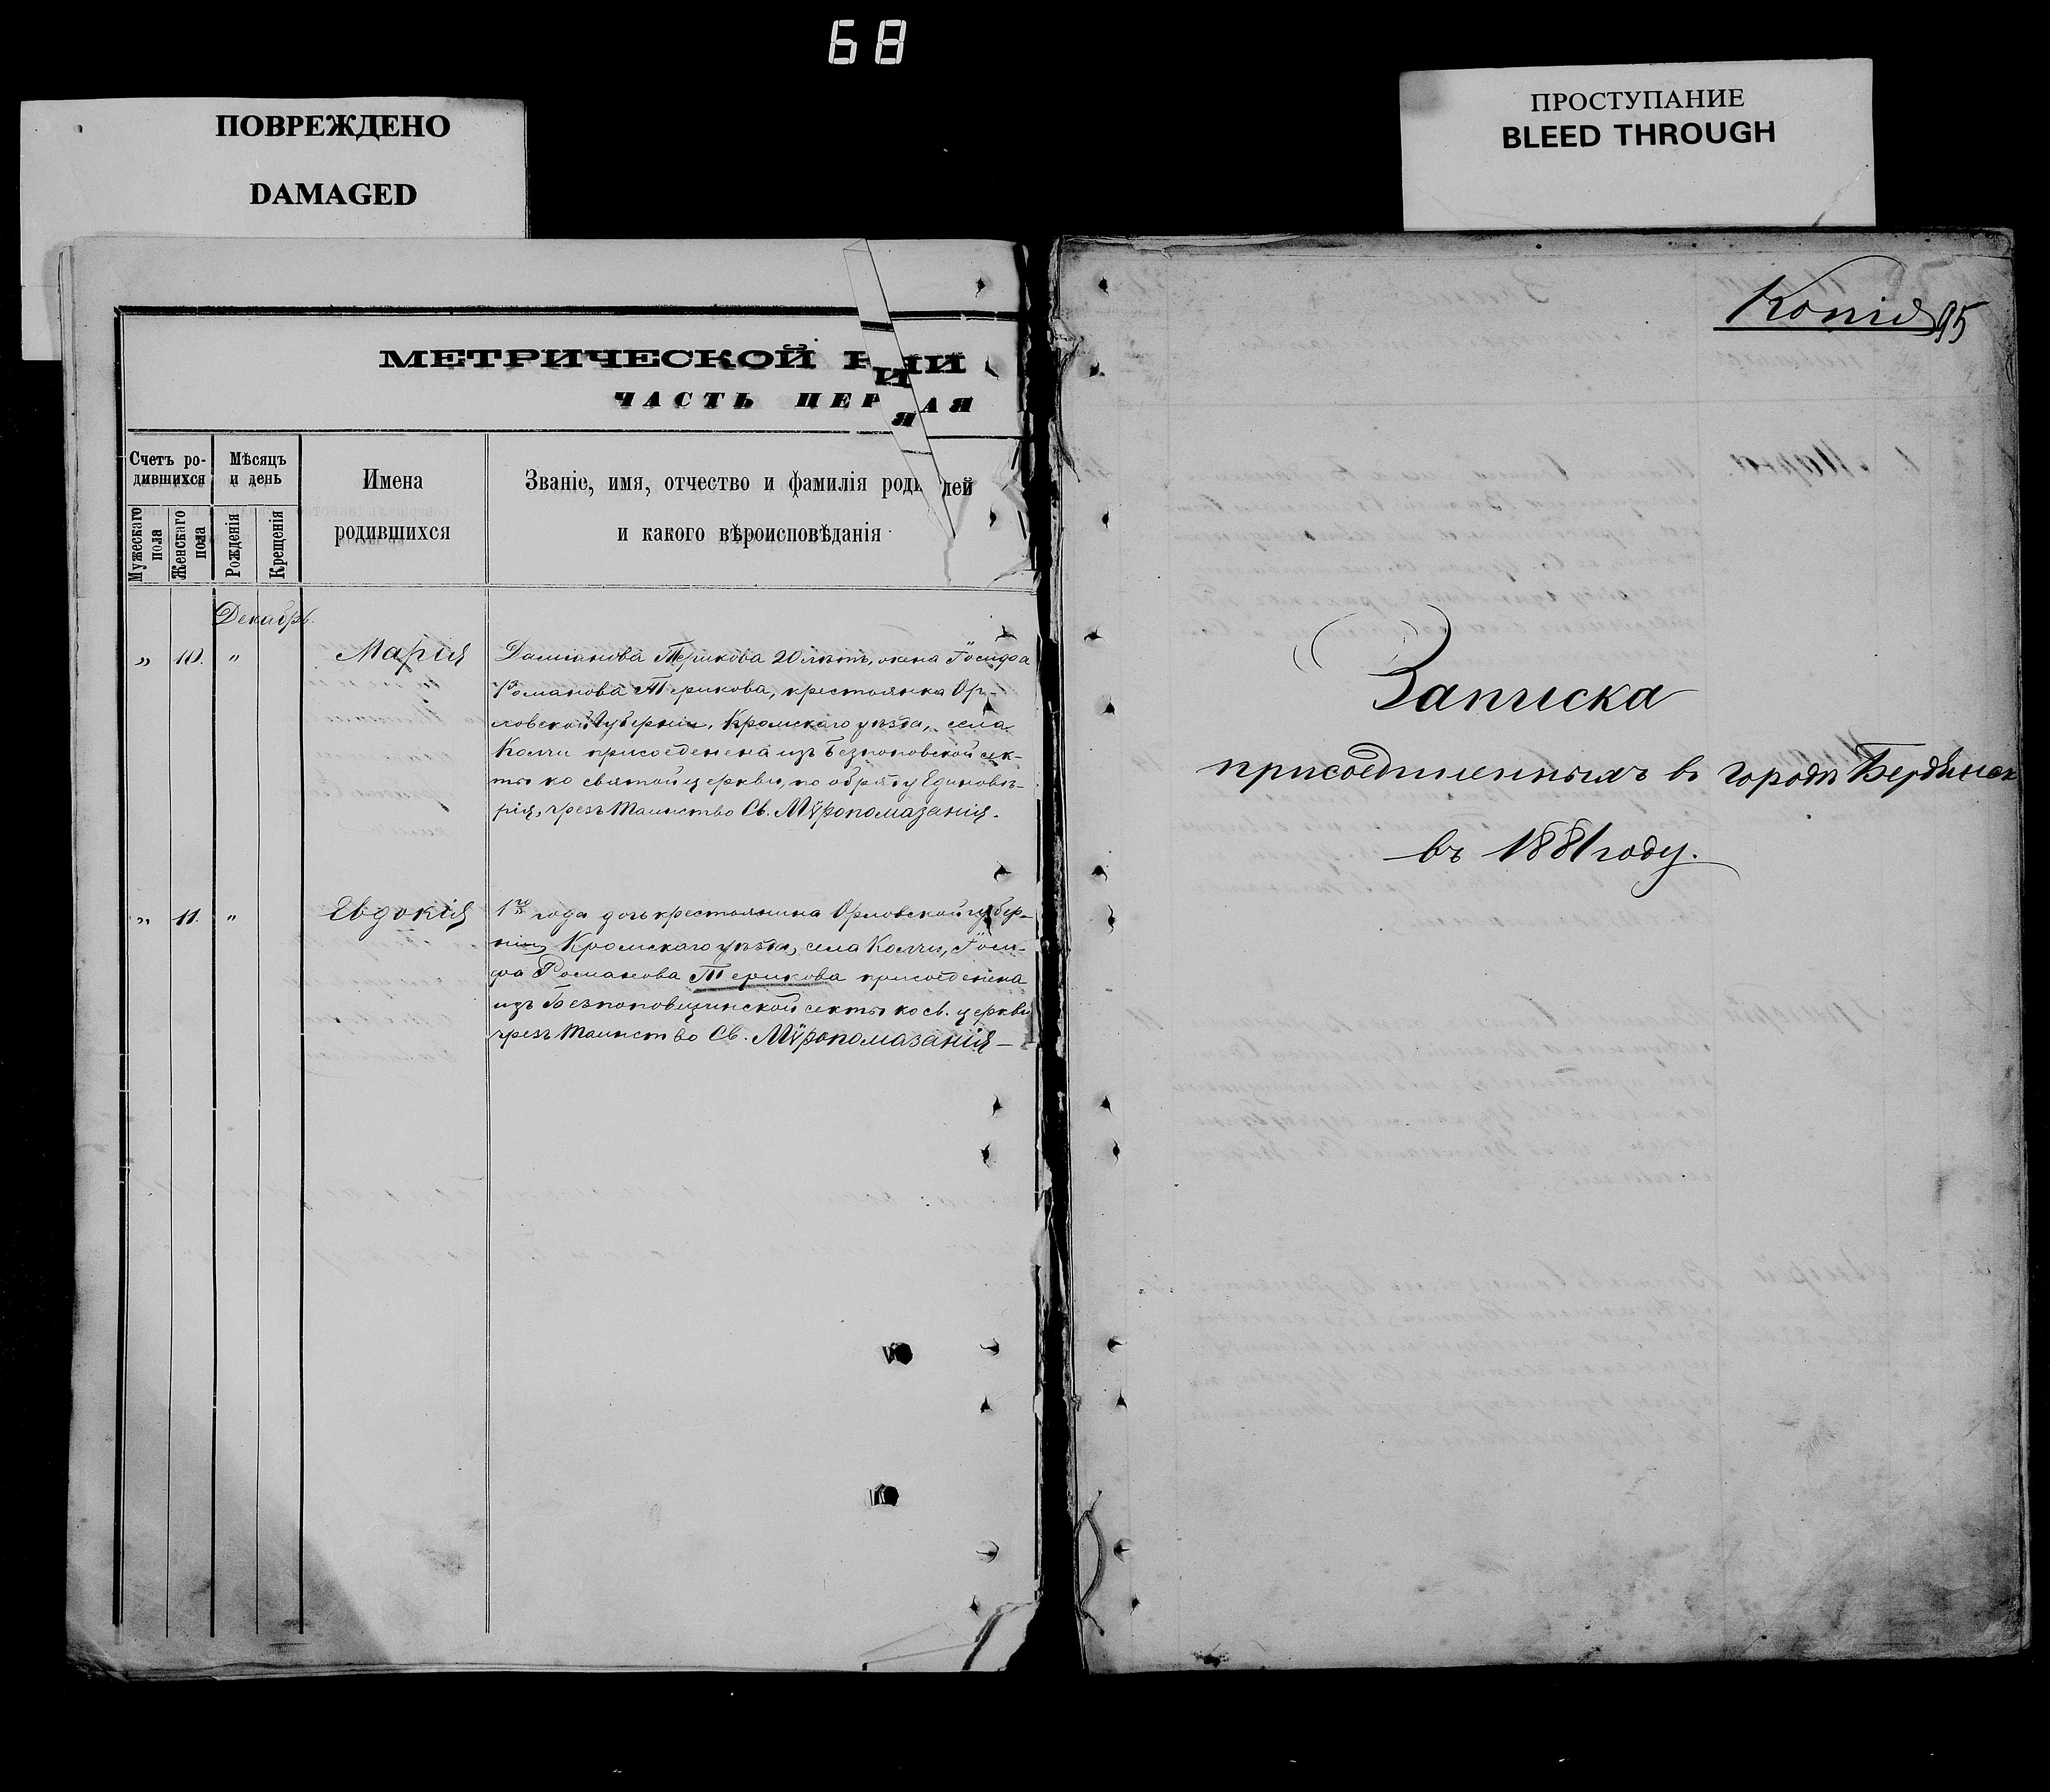 68
ПОВРЕЖДЕНО
DAMAGED
ПРОСТУПАНИЕ
BLEED THROUGH
МЕТРИЧЕСКОЙ
ЧАСТЬ ПЕР
Счетъ ро-
дившихся
Мѣсяцъ
и день
Имена
родившихся
Званіе, имя, отчество и фамилія род лей
и какого вѣроисповѣданія
Мужескаго пола
Женскаго пола
Рожденія
Крещенія
Декабрь.
„ 10. „ Марія
Дамианова Терикова 20 лѣтъ, жена Іосифа
Романова Терикова, крестьянка Ор-
ловской Губерніи, Кромскаго уѣзда, села
Колчи присоеденена из Безпоповской сек-
ты ко святой церкви, по обряду Единовѣ-
рія, чрезъ Таинство Св. Мѵропомазанія.
„ 11. „ Евдокія
1го года дочь крестьянина Орловской губер-
ніи, Кромскаго уѣзда, села Колчи, Іоси-
фа Романова Терикова присоеденена
изъ Безпоповщинской секты ко св. церкви
чрезъ Таинство Св. Мѵропомазанія —
Копія
95
Записка
присоединеннымъ въ городѣ Бердянск
въ 1881 году.